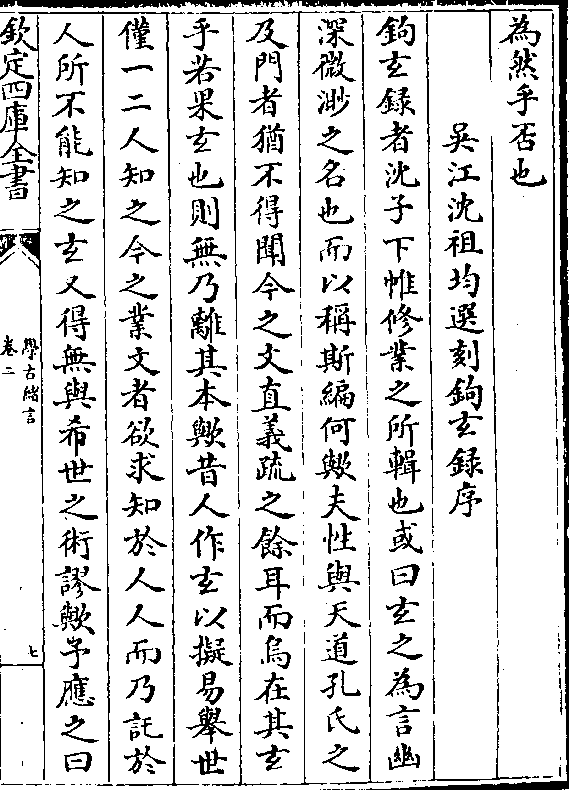 為然乎否也
吳江沈祖均選刻鉤玄録序
鉤玄録者沈子下帷修業之所輯也或曰玄之為言幽
深微渺之名也而以稱斯編何歟夫性與天道孔氏之
及門者猶不得聞今之文直義疏之餘耳而烏在其玄
乎若果玄也則無乃離其本歟昔人作玄以擬易舉世
僅一二人知之今之業文者欲求知於人人而乃託於
人所不能知之玄又得無與希世之術謬歟予應之曰
欽定四庫全書
學古緒言
卷二
七